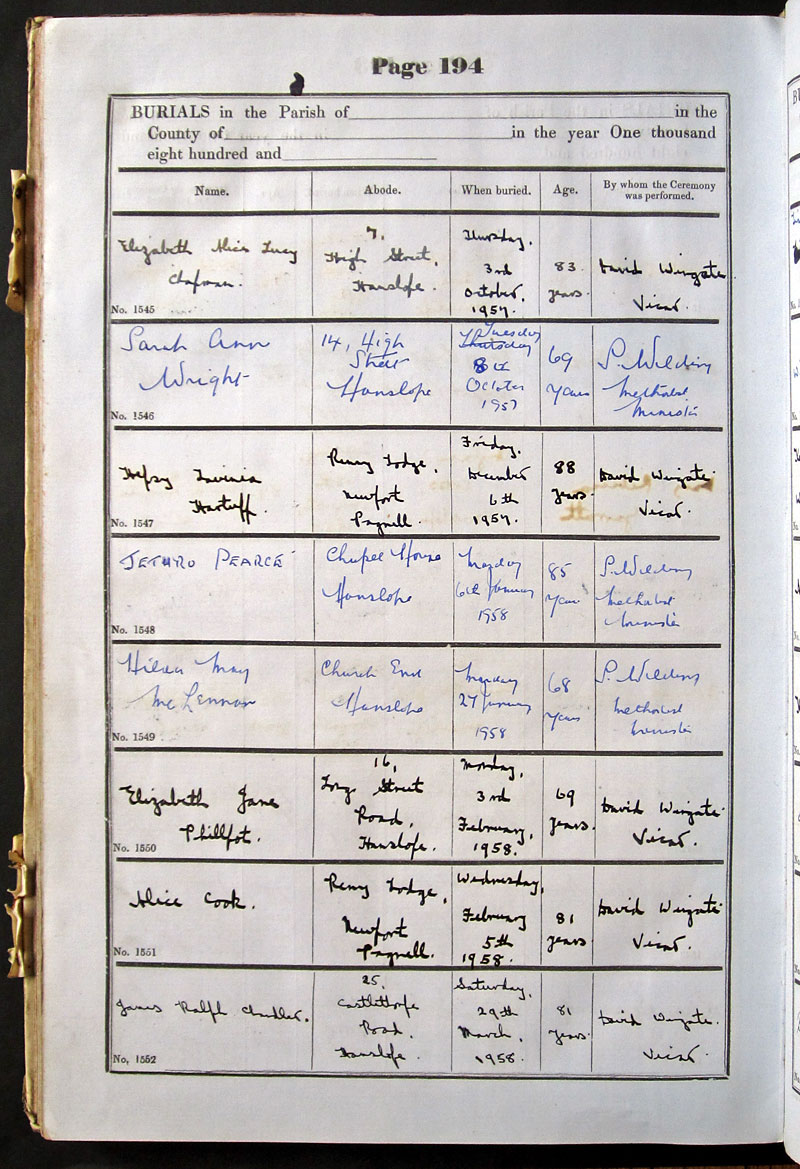 Page 194
BURIALS in the Parish of in the
County of in the year One thousand
eight hundred and
Name. Abode. When buried. Age. By whom the Ceremony
was performed.
Elizabeth Alice Lucy
Chapman.
No. 1545
7,
High Street,
Hanslope.
Thursday,
3rd
October,
1957.
83
years.
David Wingate
Vicar.
Sarah Ann
Wright
No. 1546
14, High
Street
Hanslope
Tuesday
Thursday
8th
October
1957
69
Years
P. Wilding
Methodist
Minister
Hepsy Lavinia
No. 1547
Renny Lodge,
Newfort
Pagnell.
Friday,
December
6th
1957.
88
years.
David Wingate
Vicar.
JETHRO PEARCE
No. 1548
Chapel House
Hanslope
Monday
6th January
1958
85
Years
P. Wilding
Methodist
Minister
Hilda May
McLennan
No. 1549
Church End
Hanslope
Monday
27 January
1958
68
Years
P. Wilding
Methodist
Minister
Elizabeth Jane
Phillpot.
No. 1550
16,
Long Street
Road,
Hanslope.
Monday,
3rd
February,
1958.
69
years.
David Wingate
Vicar.
Alice Cook.
No. 1551
Renny Lodge,
Newfort
Pagnell.
Wednesday,
February
5th
1958.
81
years
David Wingate
Vicar.
James Ralph Chandler.
No. 1552
25,
Castlethorpe
Road,
Hanslope.
Saturday,
29th
March,
1958.
81
years.
David Wingate.
Vicar.